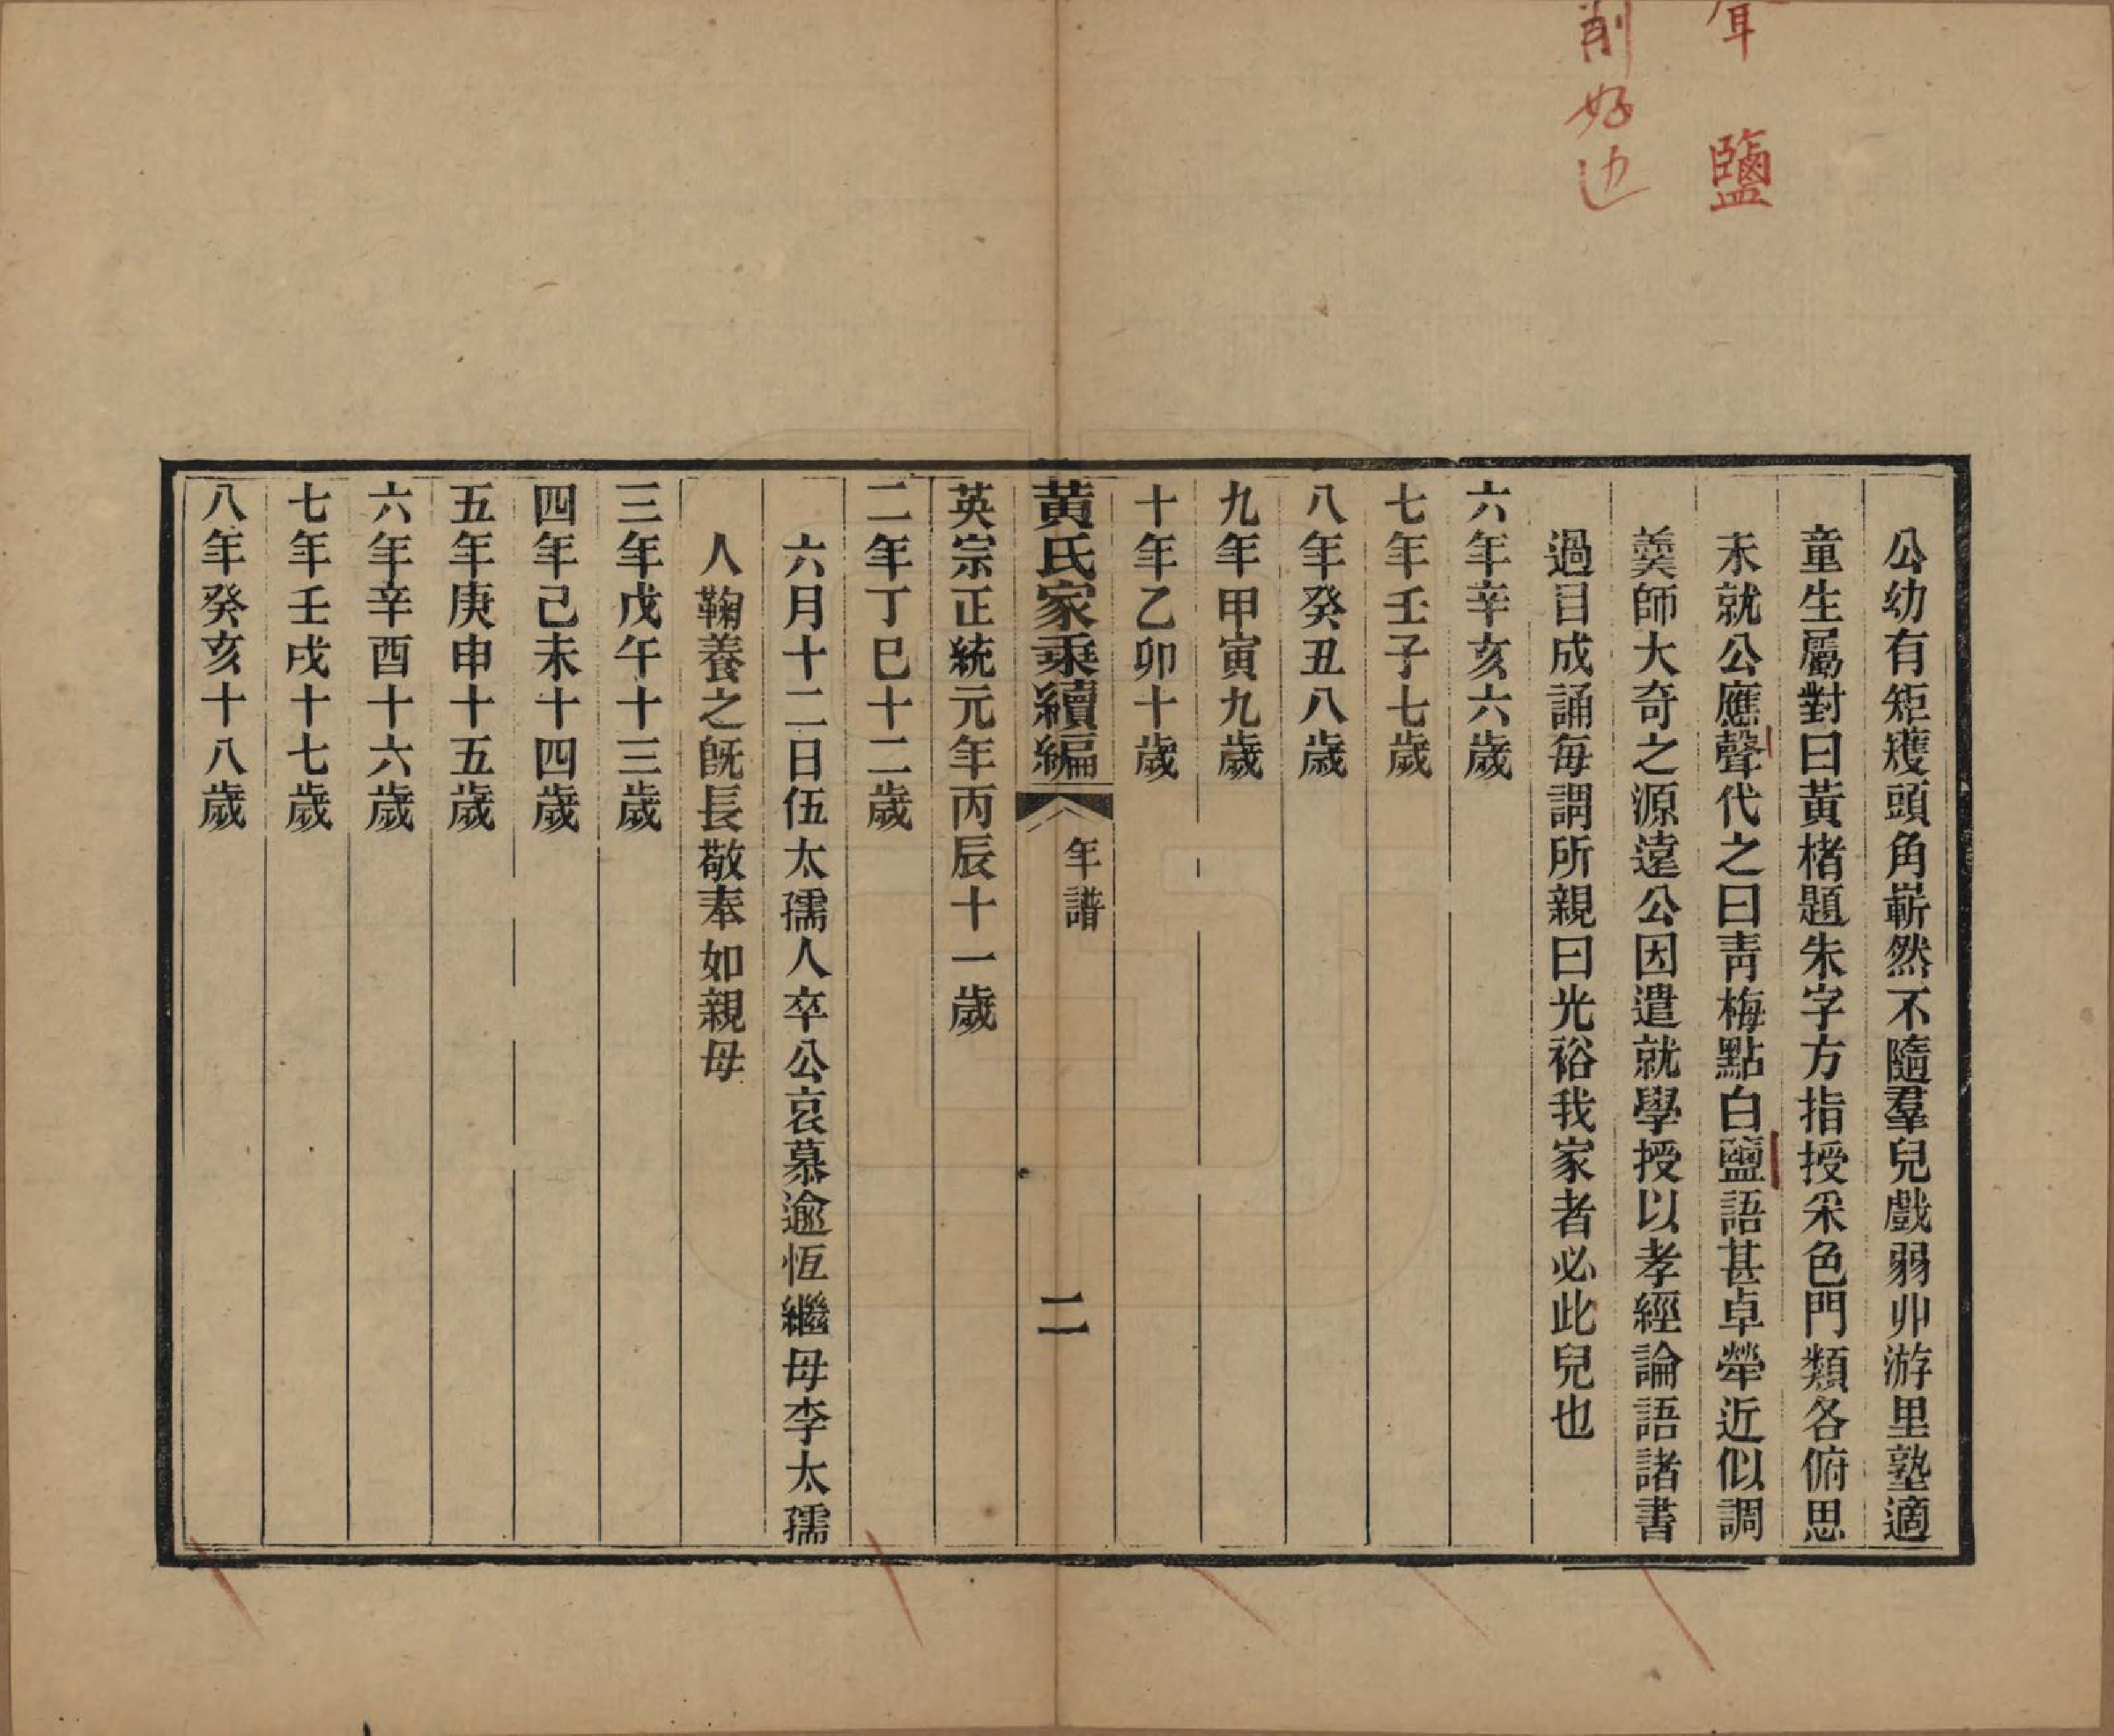 聲 鹽
削 好边
公幼有矩矱頭角嶄然不隨羣兒戲弱丱游里塾適
童生屬對曰黃楮題朱字方指授采色門類各俯思
未就公應聲代之曰靑梅點白鹽語甚卓犖近似調
羹師大奇之源遠公因遣就學授以孝經論語諸書
過目成誦每謂所親曰光裕我家者必此兒也
六年辛亥六歲
七年壬子七歲
八年癸丑八歲
九年甲寅九歲
十年乙卯十歲
黃氏家乘續編 年譜 二
英宗正統元年丙辰十一歲
二年丁巳十二歲
六月十二日伍太孺人卒公哀慕逾恆繼母李太孺
人鞠養之旣長敬奉如親母
三年戊午十三歲
四年己未十四歲
五年庚申十五歲
六年辛酉十六歲
七年壬戌十七歲
八年癸亥十八歲